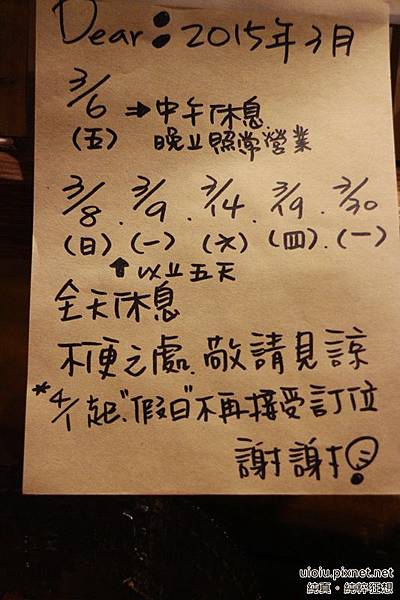 Dear: 2015年3月
3/6 ⇒ 中午休息
(五) 晚上照常營業
3/8 . 3/9 . 3/14 . 3/19 . 3/30
(日) (一) (六) (四) . (一)
↑ 以上五天
全天休息
不便之處.敬請見諒
*4/1起"假日"不再接受訂位
謝謝!
uioiu.pixnet.net
純真・純粹狂想